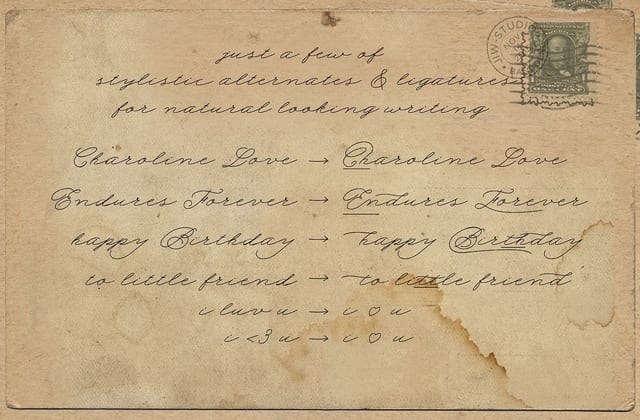 just a few of
stylistic alternates & ligatures
for natural looking writing
Charoline Love → Charoline Love
Endures Forever → Endures Forever
happy Birthday → happy Birthday
to little friend → to little friend
i luv u → i ♡ u
i <3 u → i ♡ u
JIW-STUDIO
NOV